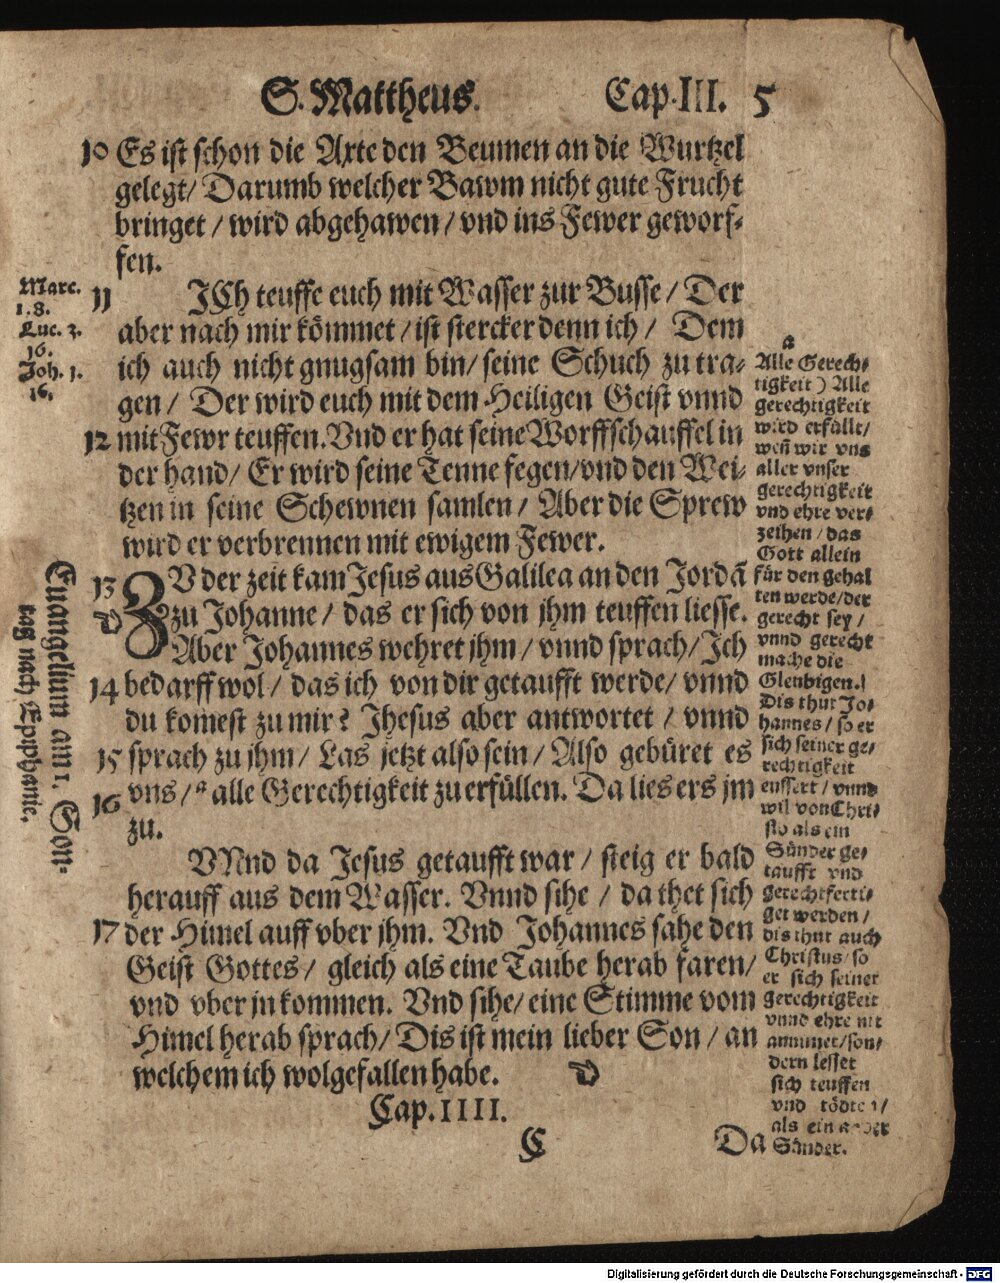 S. Mattheus. Cap. III. 5
10 Es ist schon die Axte den Beumen an die Wurtzel
gelegt/ Darumb welcher Bawm nicht gute Frucht
bringet / wird abgehawen / vnd ins Fewer geworf-
fen.
Marc.
1.8.
Luc. 3.
16.
Joh. 1.
16.
11 JCh teuffe euch mit Wasser zur Busse / Der
aber nach mir kömmet / ist stercker denn ich / Dem
ich auch nicht gnugsam bin/ seine Schuch zu tra-
gen / Der wird euch mit dem Heiligen Geist vnnd
12 mit Fewr teuffen. Vnd er hat seine Worffschauffel in
der hand/ Er wird seine Tenne fegen/vnd den Wei-
tzen in seine Schewnen samlen / Aber die Sprew
wird er verbrennen mit ewigem Fewer.
Euangelium am 1. Son-
tag nach Epyphanie.
13 ZV der zeit kam Jesus aus Galilea an den Jordā
D zu Johanne / das er sich von jhm teuffen liesse.
Aber Johannes wehret jhm / vnnd sprach/ Jch
14 bedarff wol / das ich von dir getaufft werde/ vnnd
du komest zu mir? Jhesus aber antwortet / vnnd
15 sprach zu jhm/ Las jetzt also sein / Also gebüret es
16 vns / a alle Gerechtigkeit zu erfüllen. Da lies ers jm
zu.
VNnd da Jesus getaufft war / steig er bald
herauff aus dem Wasser. Vnnd sihe / da thet sich
17 der Himel auff vber jhm. Vnd Johannes sahe den
Geist Gottes / gleich als eine Taube herab faren/
vnd vber jn kommen. Vnd sihe/ eine Stimme vom
Himel herab sprach/ Dis ist mein lieber Son / an
welchem ich wolgefallen habe. D
Cap. IIII.
C Da
a
Alle Gerech-
tigkeit) Alle
gerechtigkeit
wird erfüllt/
weñ wir vns
aller vnser
gerechtigkeit
vnd ehre ver-
zeihen / das
Gott allein
für den gehal
ten werde/der
gerecht sey /
vnnd gerecht
mache die
Gleubigen.
Dis thut Jo-
hannes / so er
sich seiner ge-
rechtigkeit
eussert / vnnd
wil von Chri-
sto als ein
Sünder ge-
taufft vnd
gerechtferti-
get werden /
dis thut auch
Christus/ so
er sich seiner
gerechtigkeit
vnnd ehre nit
annimet/son-
dern lesset
sich teuffen
vnd tödten/
als ein ander
Sünder.
Digitalisierung gefördert durch die Deutsche Forschungsgemeinschaft - DFG